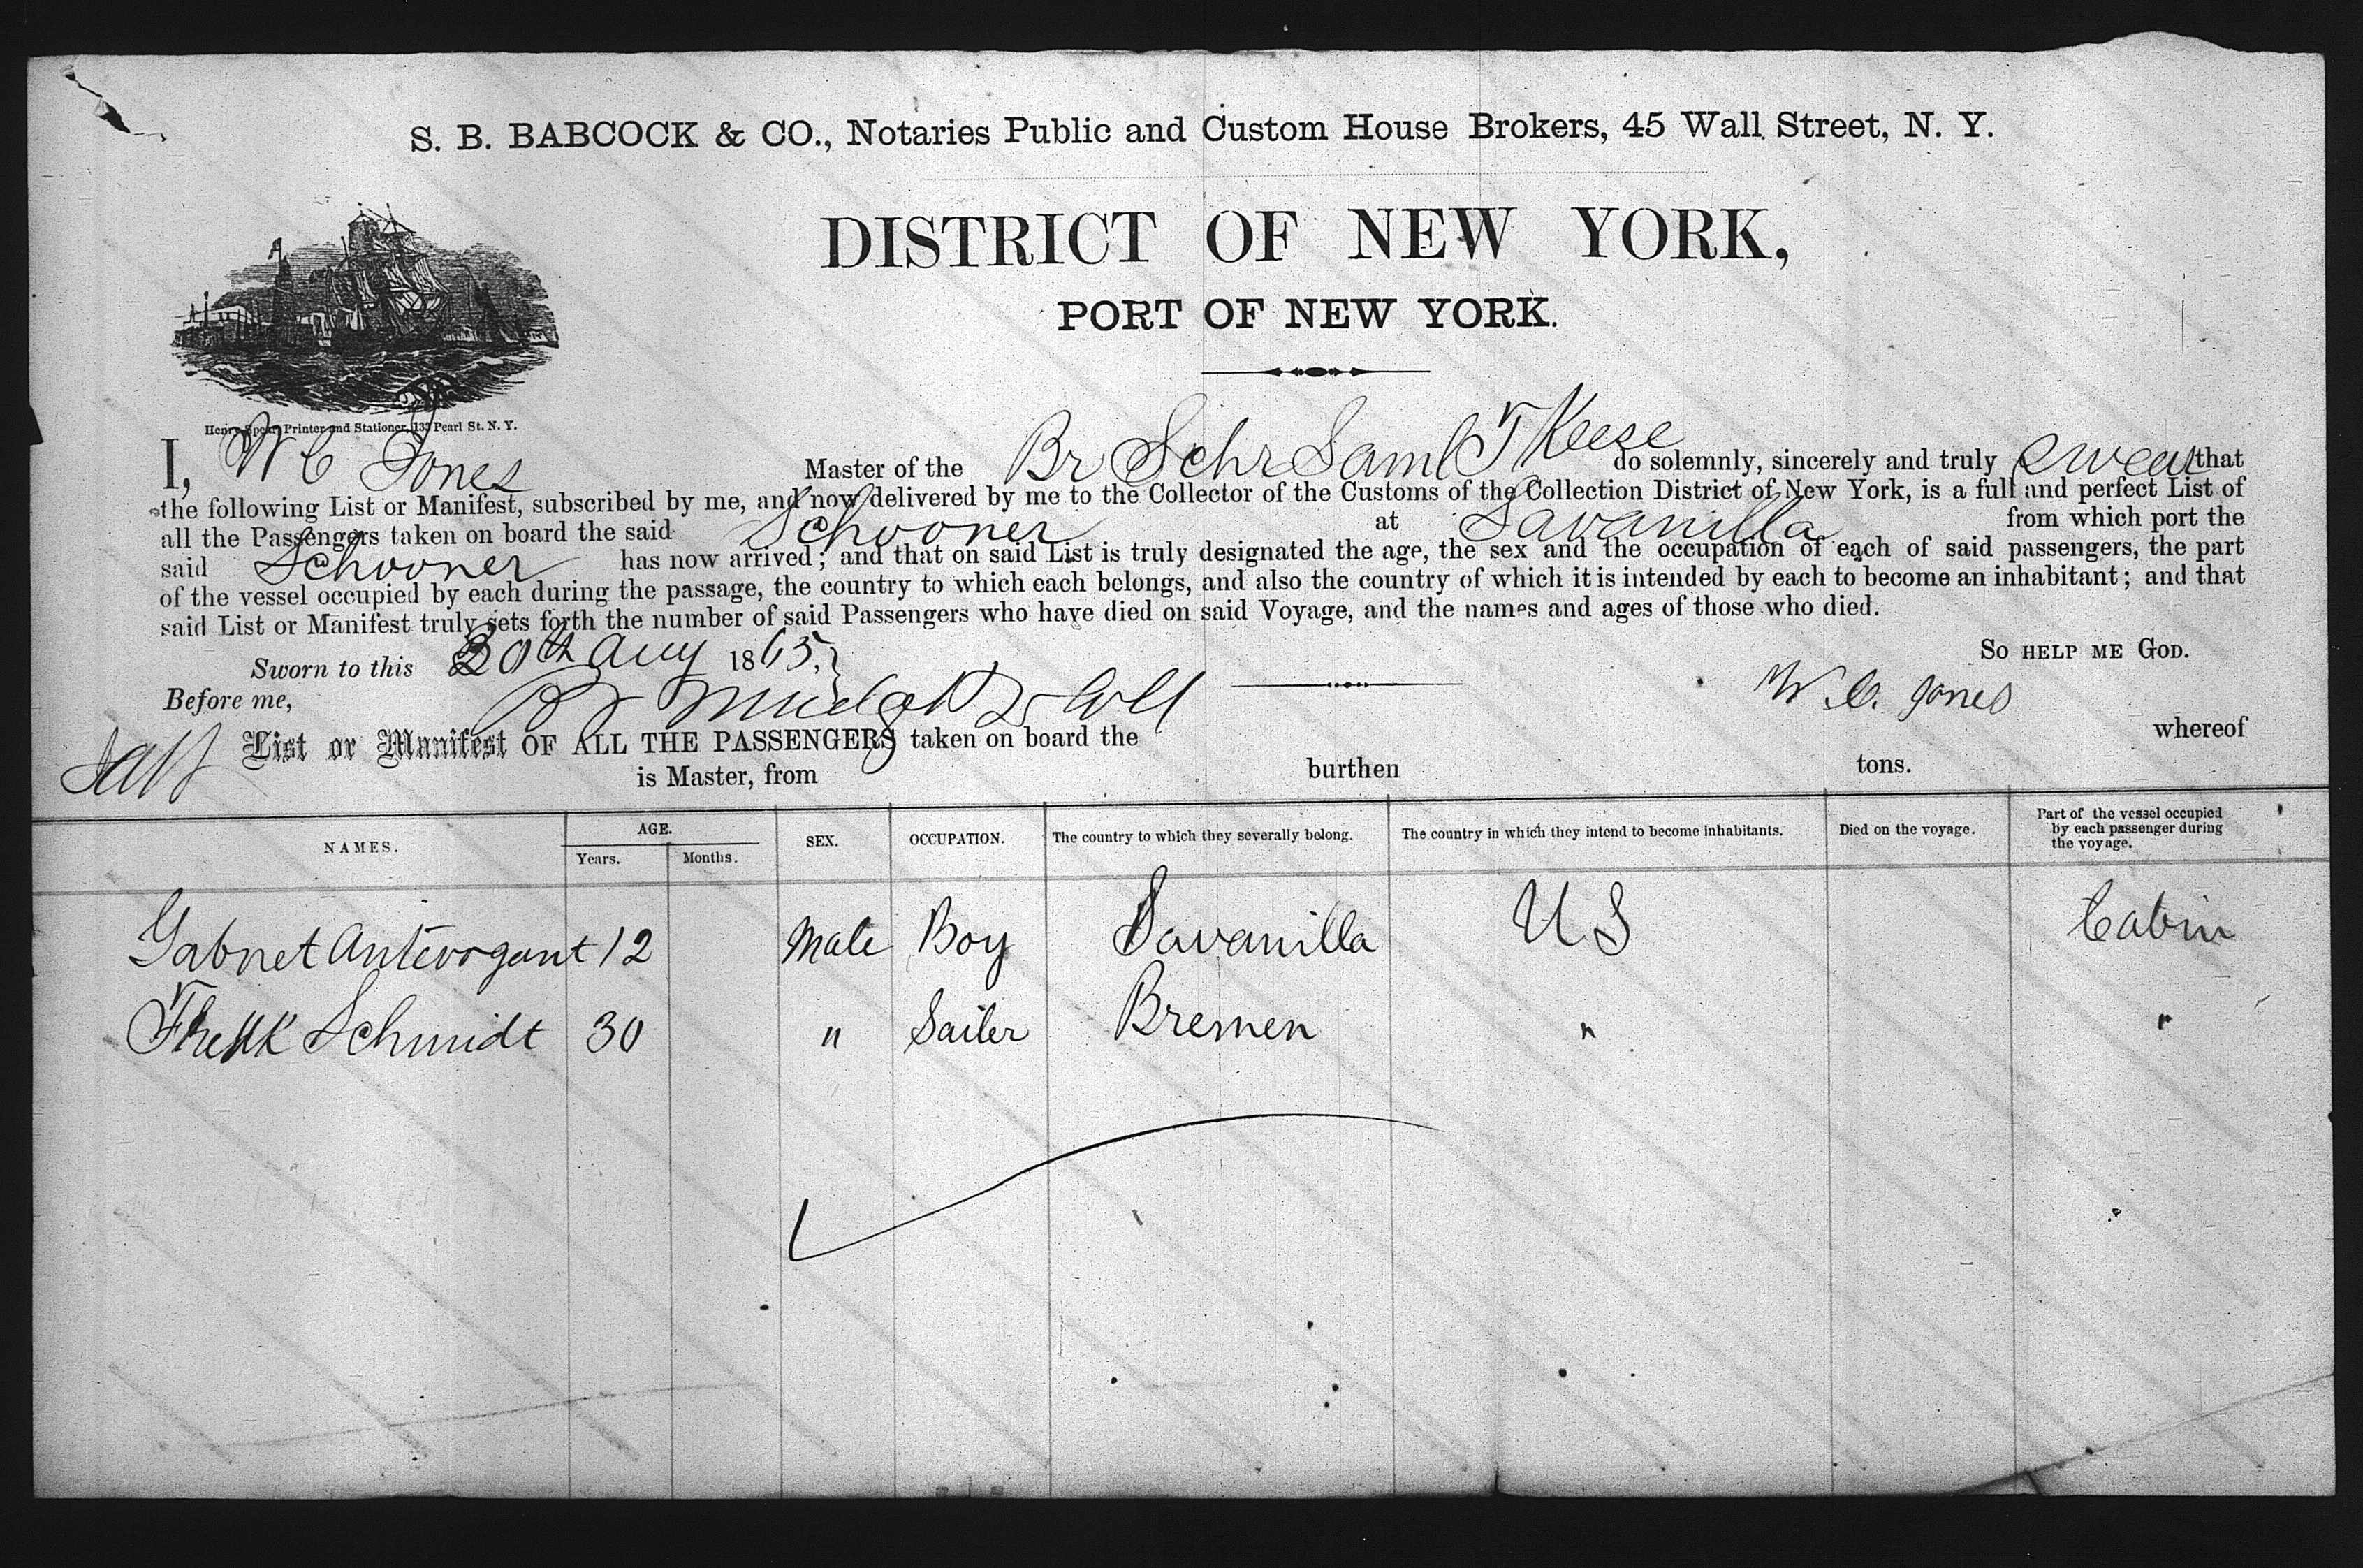 S. B. BABCOCK & CO., Notaries Public and Custom House Brokers, 45 Wall Street, N. Y.
DISTRICT OF NEW YORK,
PORT OF NEW YORK.
Henry Spear, Printer and Stationer, 133 Pearl St. N. Y.
I, W C Jones Master of the Br Schr Saml T Keese do solemnly, sincerely and truly swear that
the following List or Manifest, subscribed by me, and now delivered by me to the Collector of the Customs of the Collection District of New York, is a full and perfect List of
all the Passengers taken on board the said Schooner at Savanilla from which port the
said Schooner has now arrived; and that on said List is truly designated the age, the sex and the occupation of each of said passengers, the part
of the vessel occupied by each during the passage, the country to which each belongs, and also the country of which it is intended by each to become an inhabitant; and that
said List or Manifest truly sets forth the number of said Passengers who have died on said Voyage, and the names and ages of those who died.
Sworn to this 30th Aug 1865, So HELP ME GOD.
Before me, W. C. Jones
List or Manifest OF ALL THE PASSENGERS taken on board the whereof
is Master, from burthen tons.
NAMES. AGE. Years. Months. SEX. OCCUPATION. The country to which they severally belong. The country in which they intend to become inhabitants. Died on the voyage. Part of the vessel occupied by each passenger during the voyage.
Gabnet 12 Male Boy Savanilla U S Cabin
Schmidt 30 " Sailer Bremen " "